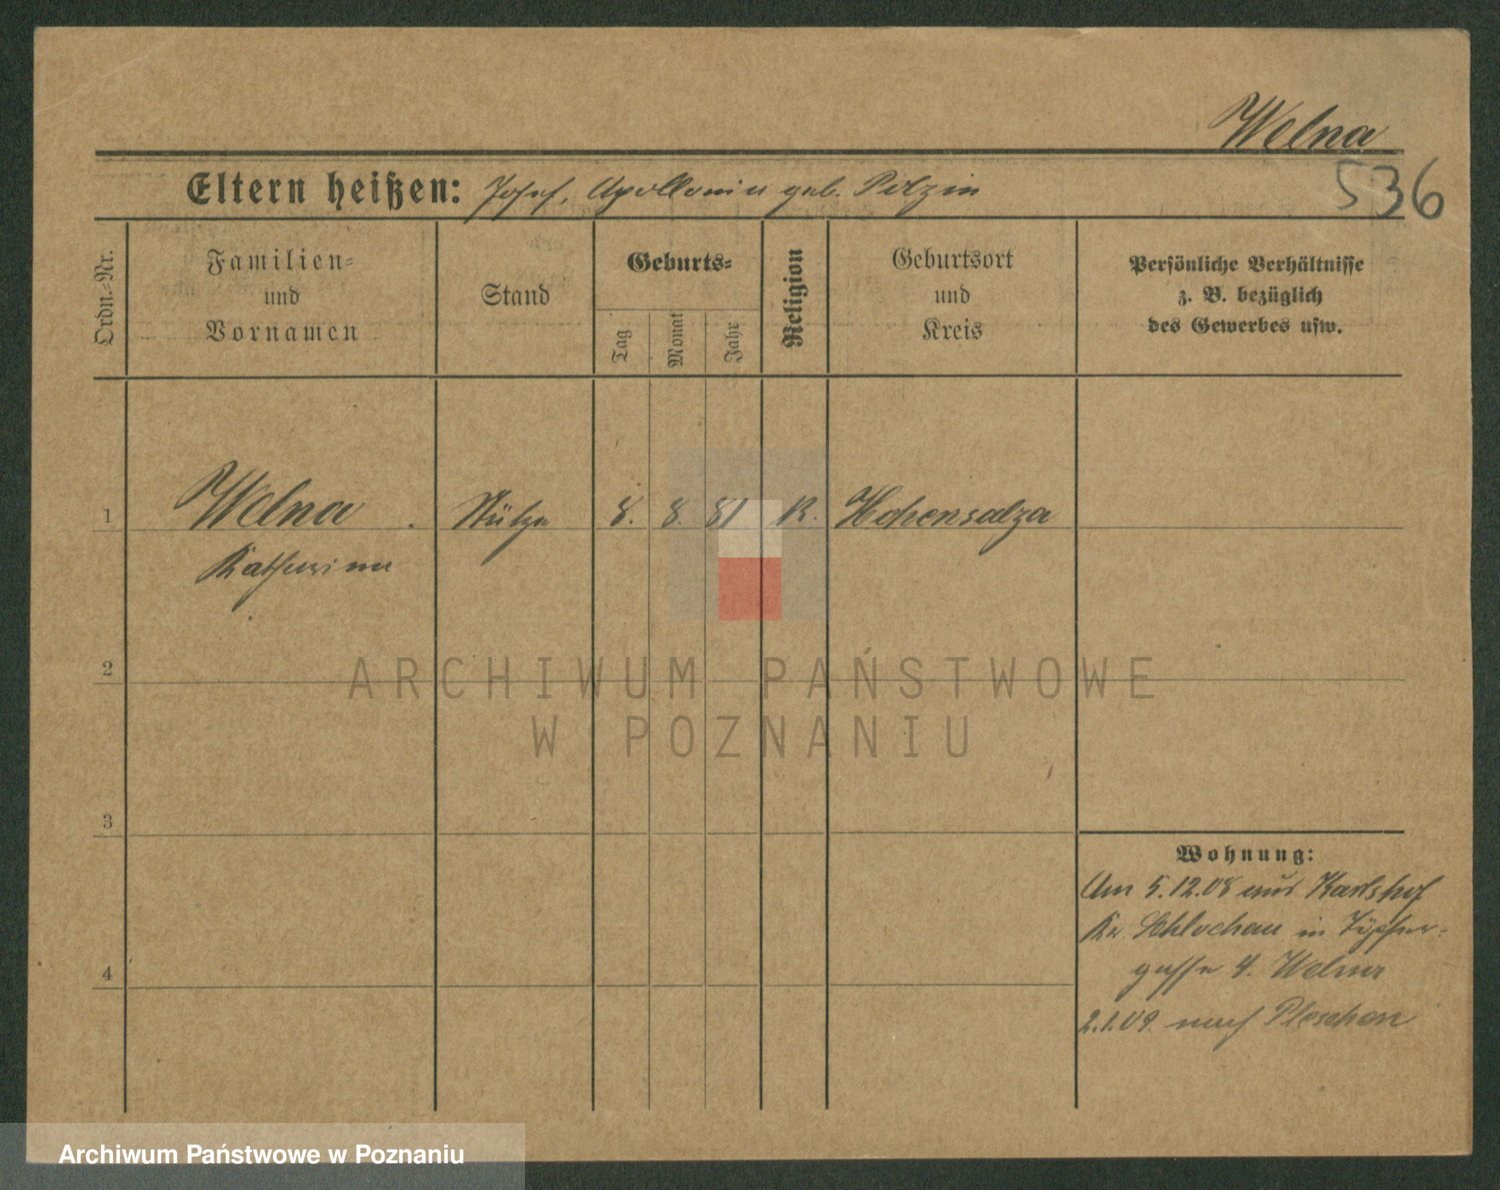 Welna
536
Eltern heißen: Josef, Apollonia geb. Polzin
Ordn.-Nr.
Familien-
und
Vornamen
Stand
Geburts-
Tag
Monat
Jahr
Religion
Geburtsort
und
Kreis
Persönliche Verhältnisse
z. B. bezüglich
des Gewerbes usw.
1 Welna Stütze 8. 8. 81 K. Hohensalza
Katharina
2
3
4
Wohnung:
Am 5.12.08 aus Karlshof
Kr. Schlochau in Töpfer-
gasse 4. Welna
2.1.09. nach Pleschen
ARCHIWUM PAŃSTWOWE
W POZNANIU
Archiwum Państwowe w Poznaniu